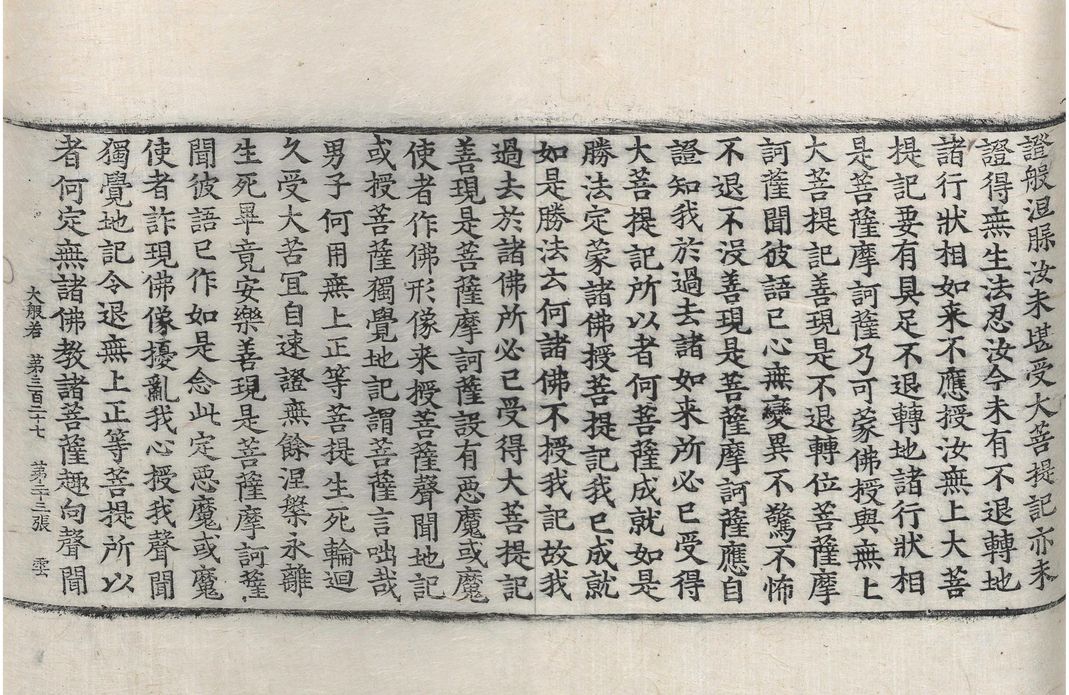 證般涅槃汝未堪受大菩提記亦未
證得無生法忍汝今未有不退轉地
諸行狀相如来不應授汝無上大菩
提記要有具足不退轉地諸行狀相
是菩薩摩訶薩乃可蒙佛授與無上
大菩提記善現是不退轉位菩薩摩
訶薩聞彼語已心無變異不驚不怖
不退不沒善現是菩薩摩訶薩應自
證知我於過去諸如来所必已受得
大菩提記所以者何菩薩成就如是
勝法定蒙諸佛授菩提記我已成就
如是勝法云何諸佛不授我記故我
過去於諸佛所必已受得大菩提記
善現是菩薩摩訶薩設有惡魔或魔
使者作佛形像来授菩薩聲聞地記
或授菩薩獨覺地記謂菩薩言咄哉
男子何用無上正等菩提生死輪迴
久受大苦宜自速證無餘涅槃永離
生死畢竟安樂善現是菩薩摩訶薩
聞彼語已作如是念此定惡魔或魔
使者詐現佛像擾亂我心授我聲聞
獨覺地記令退無上正等菩提所以
者何定無諸佛教諸菩薩趣向聲聞
大般若 第三百二十七 第二十三張 雲